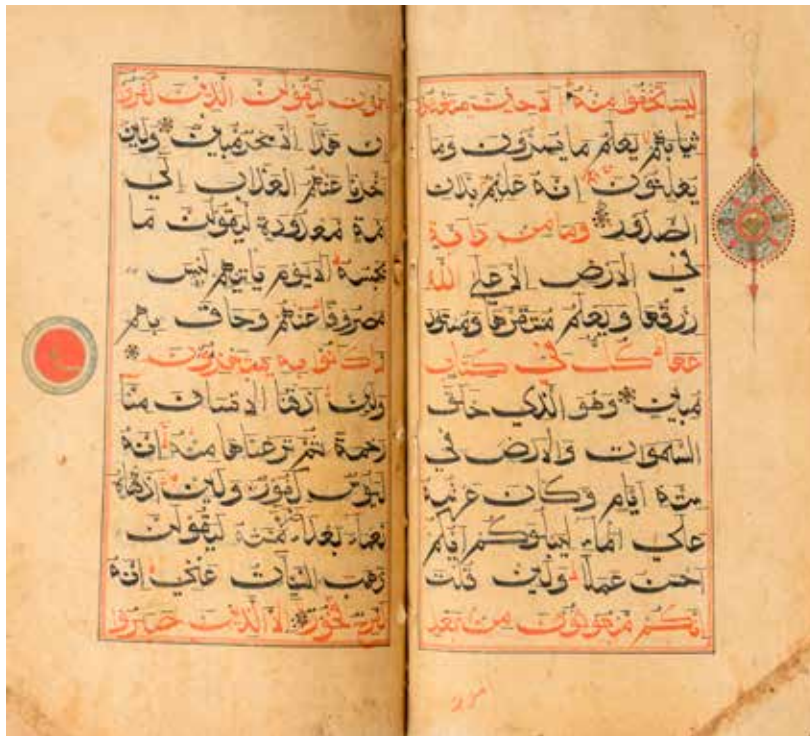 ليستخفوا منه الا حين يستغشون
ثيابهم يعلم ما يسرون وما
يعلنون انه عليم بذات
الصدور وما من دابة
في الارض الا علي الله
رزقها ويعلم مستقرها ومستود
عها كل في كتاب
مبين وهو الذي خلق
السموات والارض في
ستة ايام وكان عرشه
علي الماء ليبلوكم ايكم
احسن عملا ولين قلت
انكم مبعوثون من بعد
الموت ليقولن الذين كفروا
ان هذا الا سحر مبين ولين
اخرنا عنهم العذاب الي
امة معدودة ليقولن ما
يحبسه الا يوم ياتيهم ليس
مصروفا عنهم وحاق بهم
ما كانوا به يستهزءون
ولين اذقنا الانسان منا
رحمة ثم نزعناها منه انه
ليوس كفور ولين اذقناه
نعماء بعد ضراء مسته ليقولن
ذهب السيات عني انه
لفرح فخور الا الذين صبروا